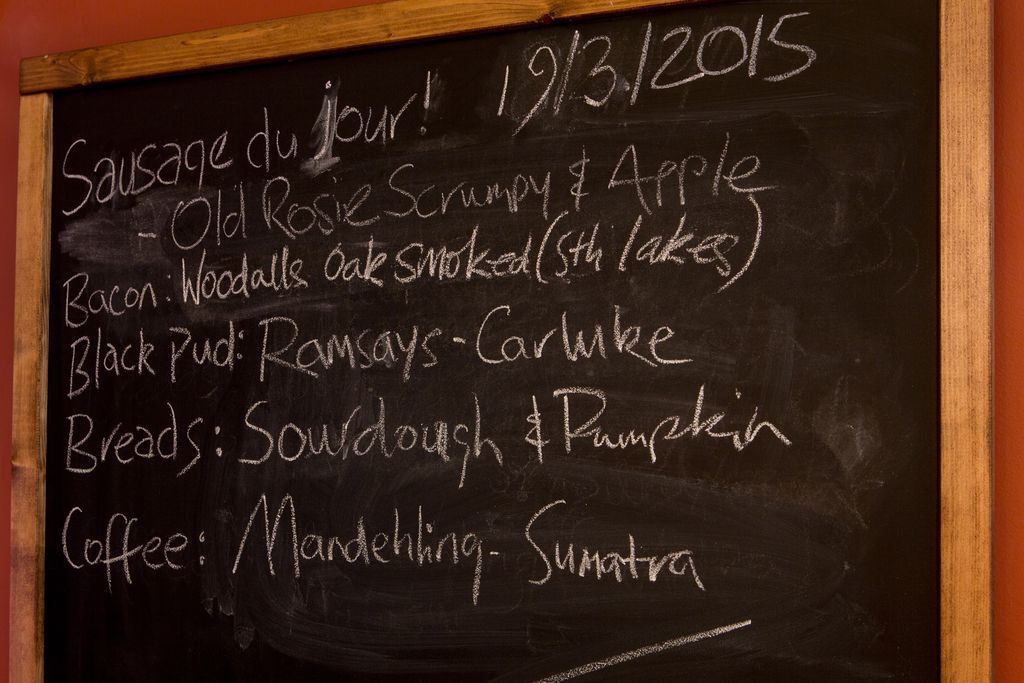 Sausage du jour! 19/3/2015
- Old Rosie Scrumpy & Apple
Bacon: Woodalls Oak smoked (Sth lakes)
Black Pud: Ramsays - Carluke
Breads: Sourdough & Pumpkin
Coffee: Mandehling - Sumatra